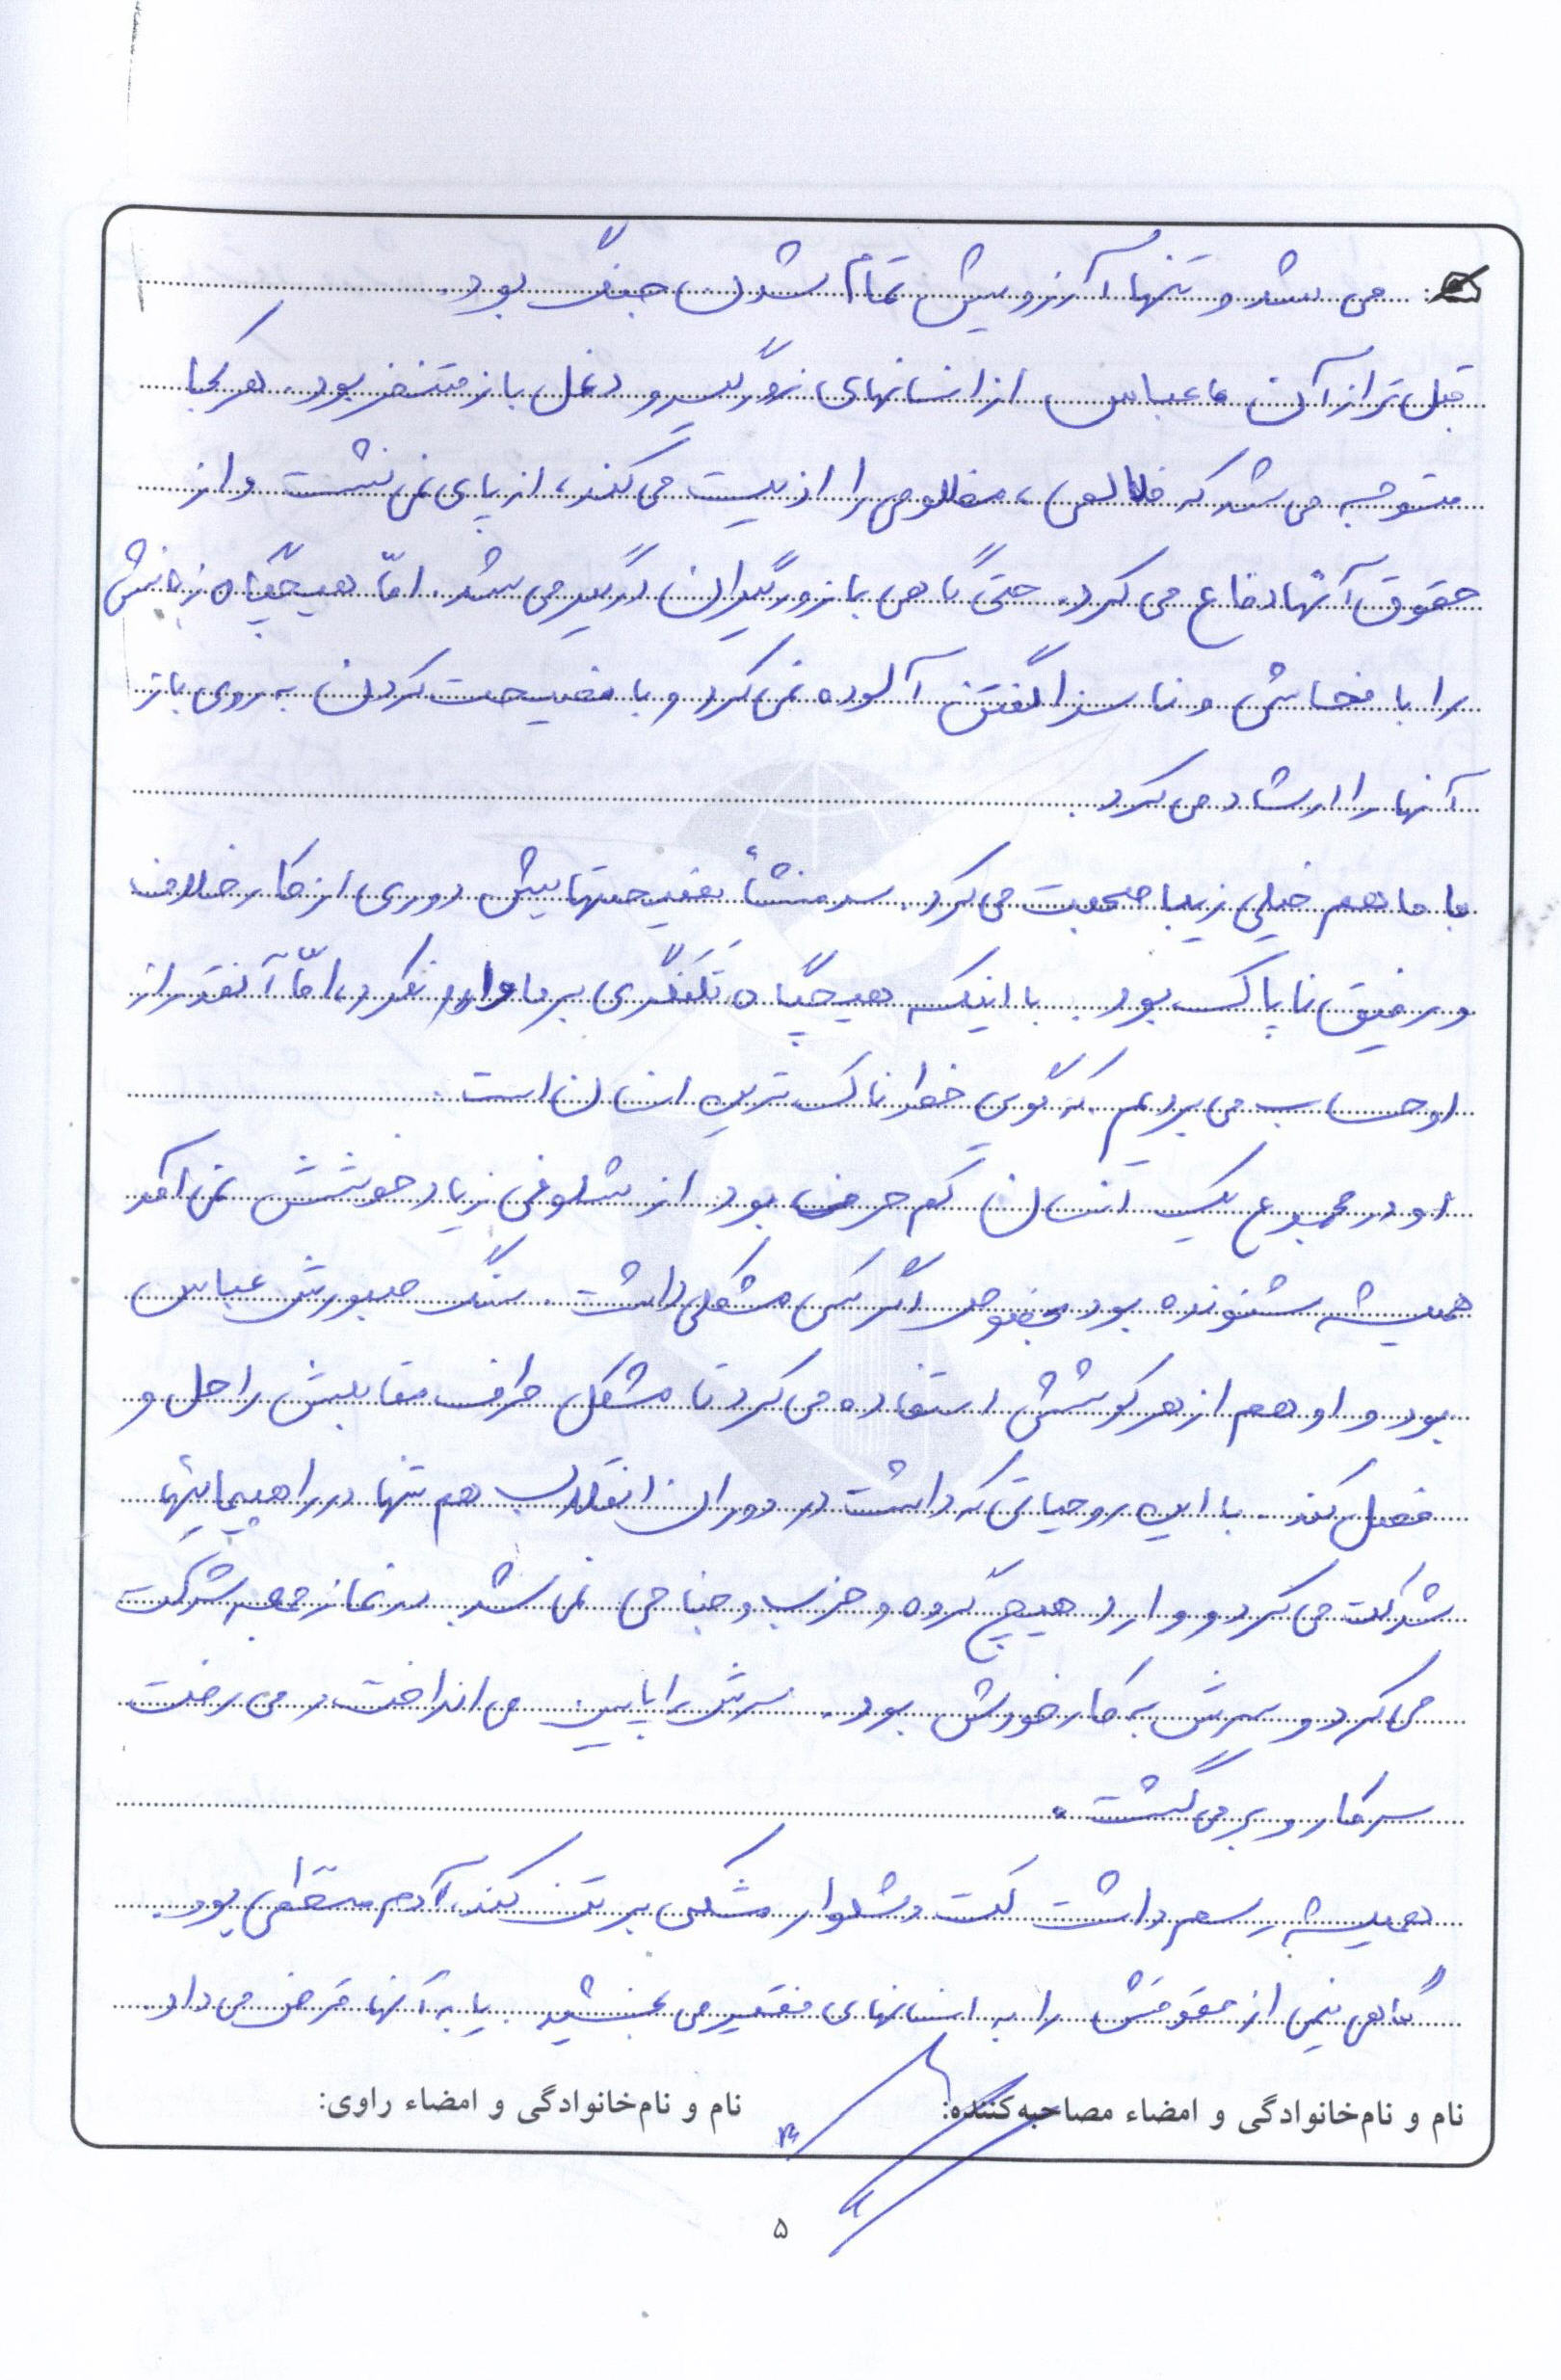 می شد و تنها آرزویش تمام شدن جنگ بود.
قبل تر از آن عباس از انسانهای زورگیر و دغل باز متنفر بود. هر کجا
متوجه می شد که ظالمی، مظلومی را اذیت می کند، از پای نمی نشست و از
حقوق آنها دفاع می کرد. حتی گاهی با زورگیران درگیر می شد. امّا هیچگاه زبانش
را با فحاشی و ناسزا گفتن آلوده نمی کرد و با نصیحت کردن به روی باز
آنها را ارشاد می کرد.
با ما هم خیلی زیبا صحبت می کرد. سر منشأ نصیحتهایش دوری از کار خلاف
و رفیق ناپاک بود. با اینکه هیچگاه تَلَنگری بر ما وارد نکرد، امّا آنقدر از
او حساب می بردیم که گویی خطرناک ترین انسان است.
او در مجموع یک انسان کم حرف بود از شلوغی زیاد خوشش نمی آمد
همیشه شنونده بود بخصوص اگر کسی مشکلی داشت. سنگ صبورش عباس
بود و او هم از هر کوششی استفاده می کرد تا مشکل طرف مقابلش را حل و
فصل کند. با این روحیاتی که داشت در دوران انقلاب هم تنها در راهپیمایی‌ها
شرکت می کرد و وارد هیچ گروه و حزب و جناحی نمی شد. در نماز جمعه شرکت
می کرد و سرش به کار خودش بود. سرش را پایین می انداخت و می رفت
سر کار و بر می گشت.
همیشه رسم داشت کت و شلوار مشکی بر تن کند، آدم منظمی بود.
گاهی نیمی از حقوقش را به انسانهای فقیر می بخشید یا به آنها قرض می داد.
نام و نام‌خانوادگی و امضاء مصاحبه‌کننده: نام و نام‌خانوادگی و امضاء راوی:
۵